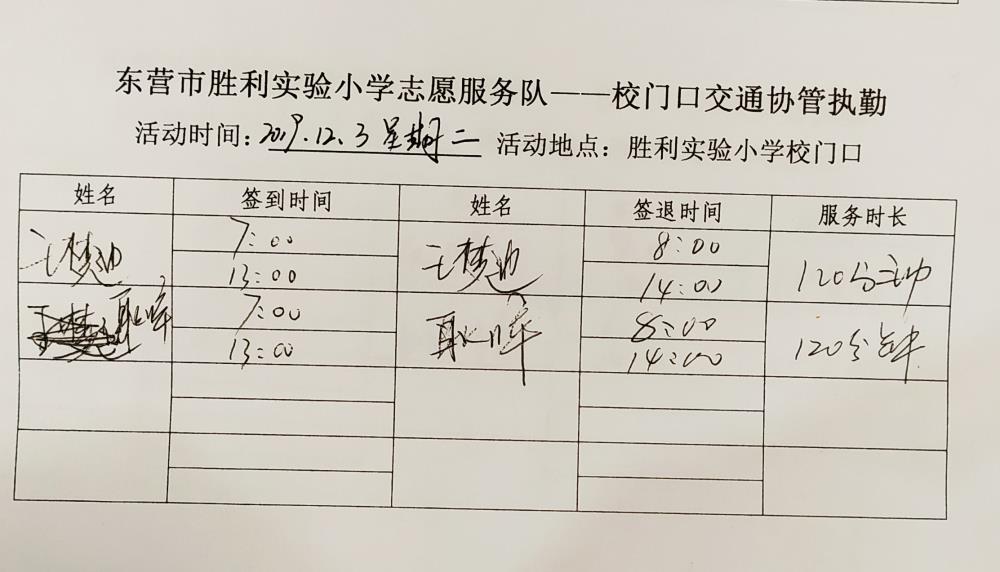 东营市胜利实验小学志愿服务队——校门口交通协管执勤
活动时间：2019.12.3 星期二 活动地点：胜利实验小学校门口
姓名 签到时间 姓名 签退时间 服务时长
王梦迪 7:00 王梦迪 8:00 120分钟
13:00 14:00
耿晖 7:00 耿晖 8:00 120分钟
13:00 14:00